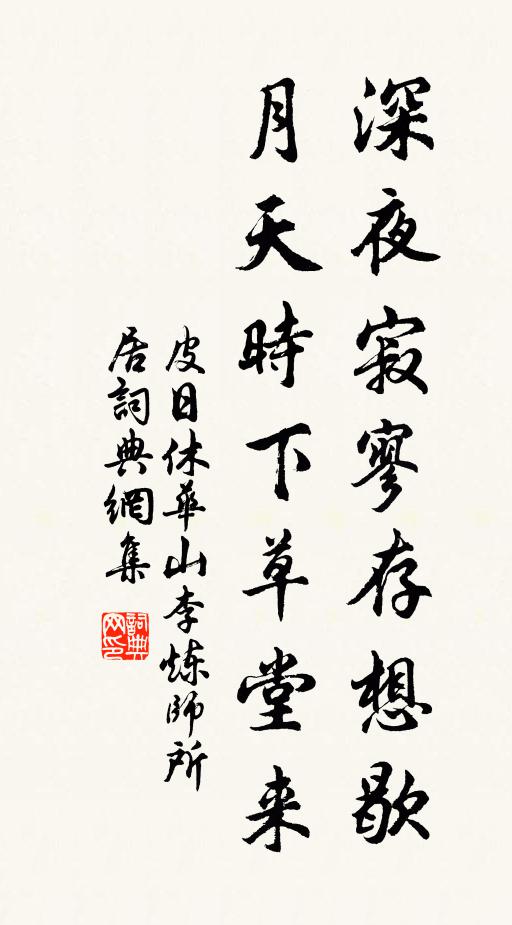 深夜寂寥存想歇
月天時下草堂来
皮日休華山李炼師所
居詞典網集
詞典
网印